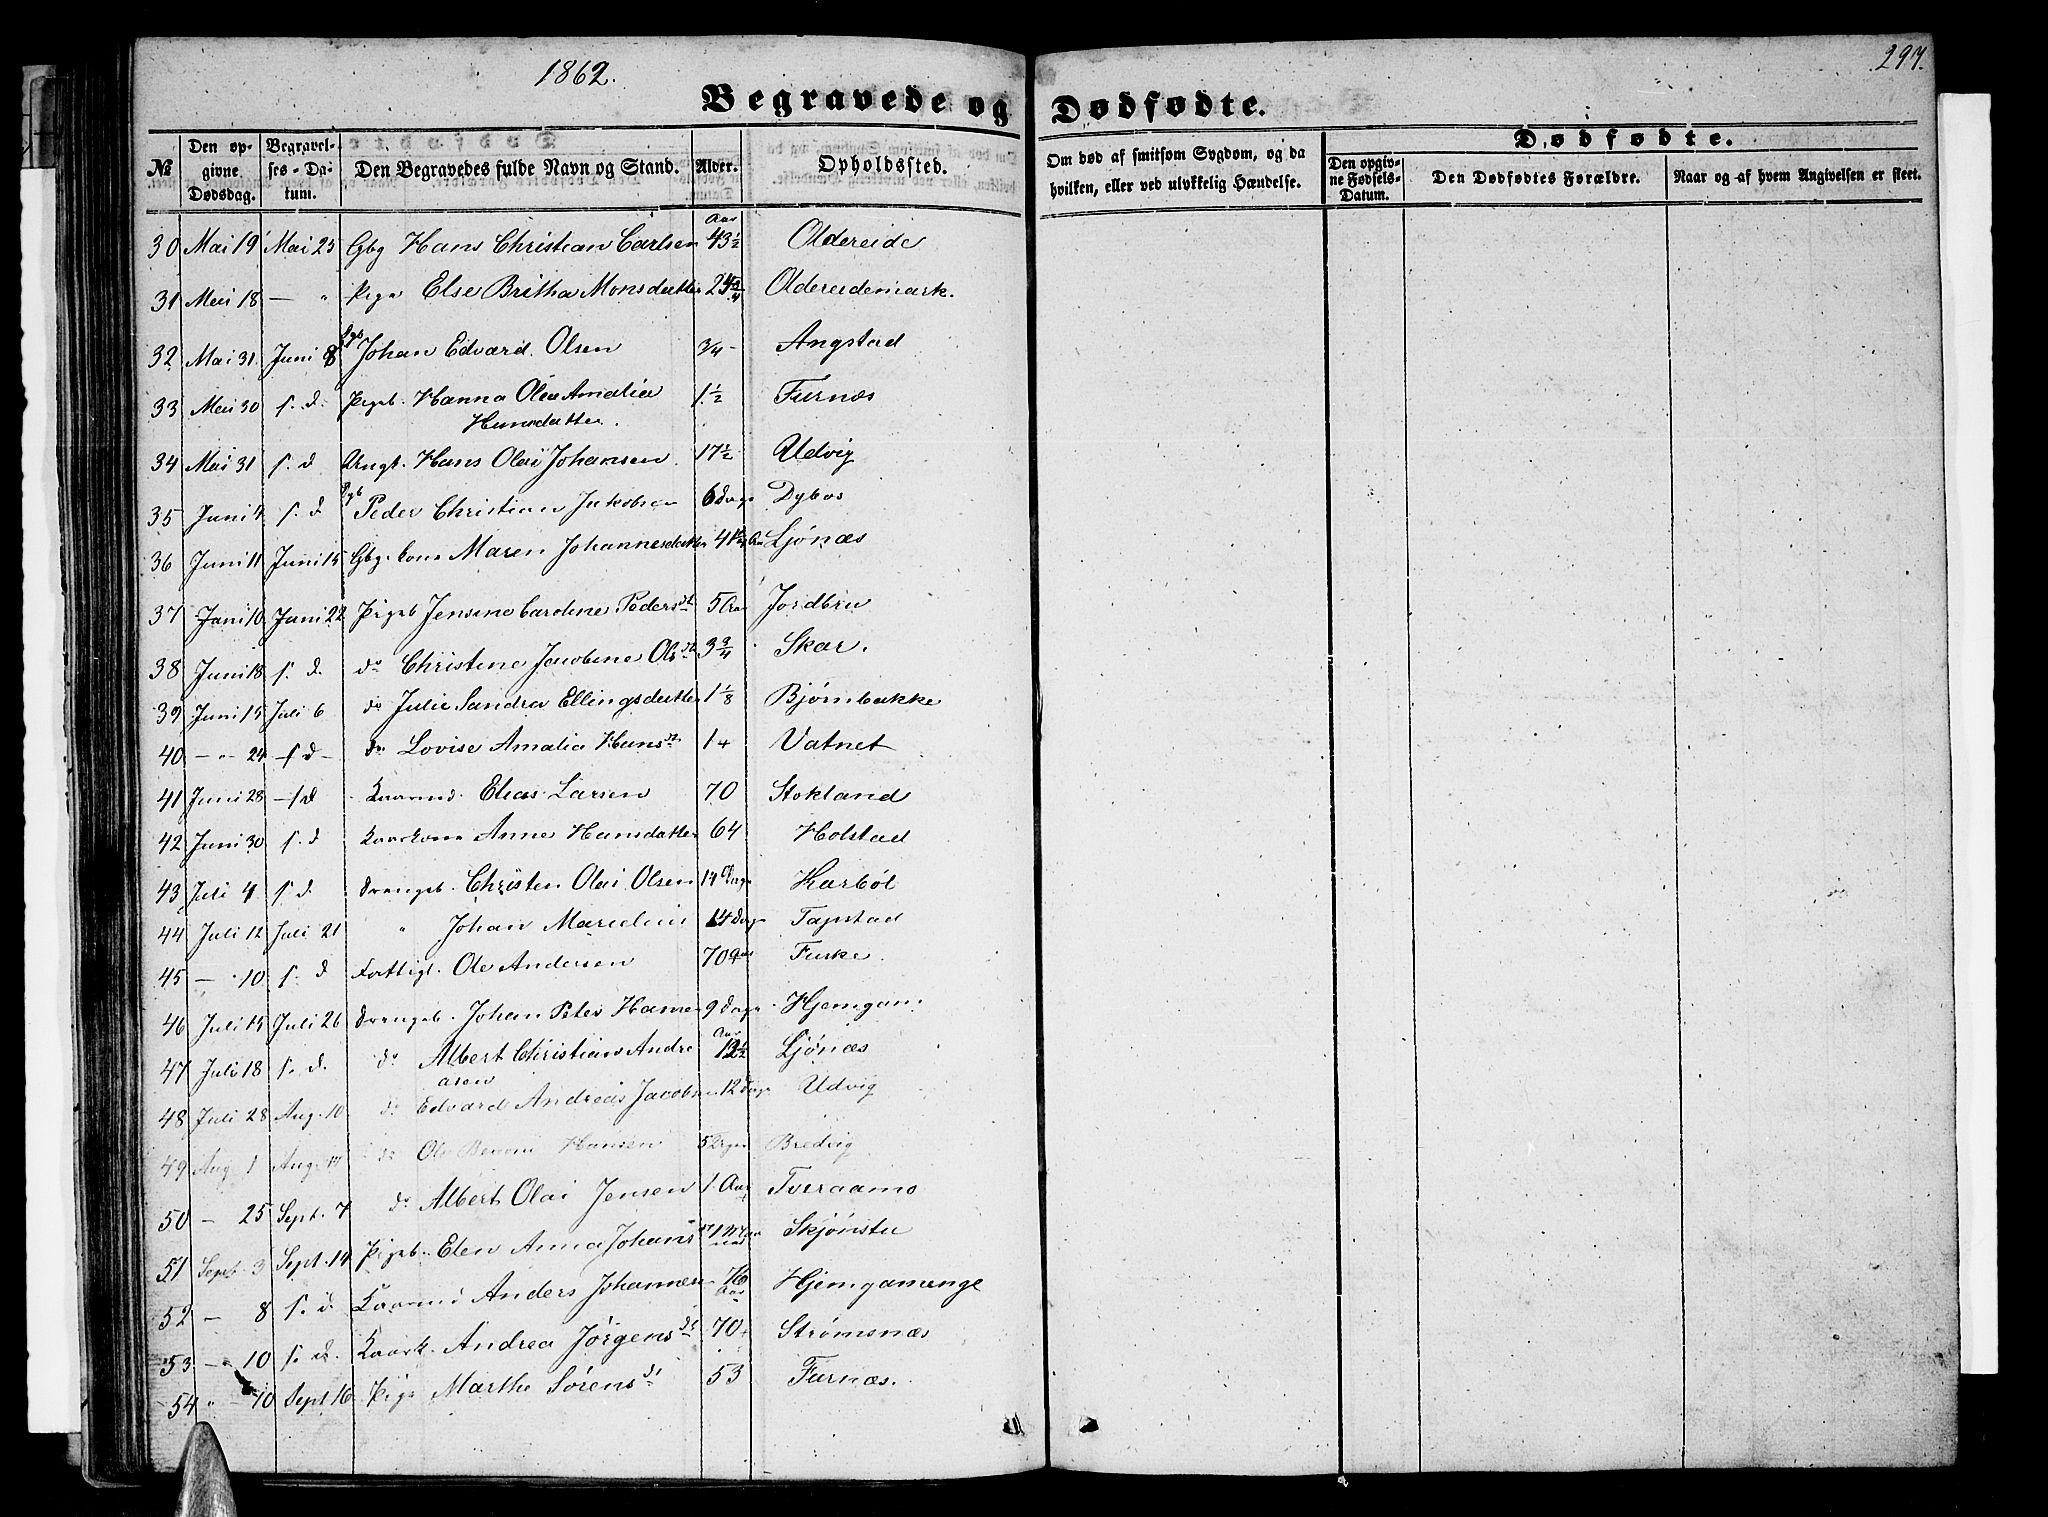 1862.
297.
Begravede og Dødfødte.
№ Den opgivne Dødsdag. Begravelses-Datum. Den Begravedes fulde Navn og Stand. Alder. Opholdssted. Om død af smitsom Sygdom, og da hvilken, eller ved ulykkelig Hændelse. Dødfødte. Den opgivne Fødsels-Datum. Den Dødfødtes Forældre. Naar og af hvem Angivelsen er skeet.
30 Mai 19 Mai 25 Gbg Hans Christian Carlsen Aar 43 1/2 Oldereide
31 Mai 18 — " Pige Else Britha Monsdatter Oldereidemark.
32 Mai 31 Juni 8 Johan Edvard Olsen 3/4 - Angstad
33 Mai 30 s. d. Pigeb. Hanna Olea Amalia 1 1/2 Furnæs
Hansdatter.
34 Mai 31 s. d Ungk. Hans Olai Johansen 17 1/2 Udvig
35 Juni 4 s. d Peder Christian Jakobsen 6 Dage Dybos
36 Juni 11 Juni 15 Gbg. Cone Maren Johannesdatter Ljønæs
37 Juni 10 Juni 22 Pigeb Jensine Caroline Pedersdt 5 Aar Jordbru
38 Juni 18 s. d. do Christine Jacobine Olsdt 3 3/4 Skar.
39 Juni 15 Juli 6 do Julie Sandra Ellingsdatter 1 1/8 Bjørnbakke
40 — " 24 — s d — do Lovise Amalia Hansdt 1 + Vatnet
41 Juni 28 — s d Kaarmd. Elias Larsen 70 Stokland
42 Juni 30 s. d Kaarkone Anne Hansdatter 64 Holstad
43 Juli 4 s d. Drengeb. Christen Olai Olsen 14 Dage Karbøl
44 Juli 12 Juli 21 " Johan 14 Dage Tapstad
45 — " 10 s. d Fattigl. Ole Andersen 70 Aar Fuske.
46 Juli 15 Juli 26 Drengeb. Johan Peter Hansen 9 Dage Hjemgam.
47 Juli 18 s. d. do Albert Christian Andre Aar 12 1/2 Ljønæs
asen
48 Juli 28 Aug. 10 do Edvard Andreas Jacobsen 12 Dage Udvig
49 Aug. 1 Aug. 17 do Ole Hansen 5 Dage Bredvig
50 — 25 Sept. 7 do Albert Olai Jensen 1 Aar Tveraamo
51 Sept. 3 Sept. 14 Pigeb. Elen Anna Johansdt Skjønstu
52 — 8 s. d Kaarmd Anders Johannesen 76 Aar Hjemgamenge
53 — " 10 s. d. Kaark. Andrea Jørgensdt 70 + Strømsnæs
54 " — 10 Sept 16 Pige Marthe Sørensdt 53 Furnæs.